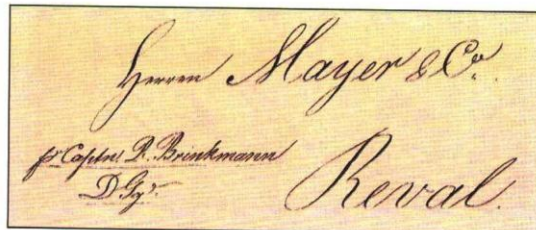 Herren Mayer & Co.
pr Captn: R. Brinkmann
Reval.